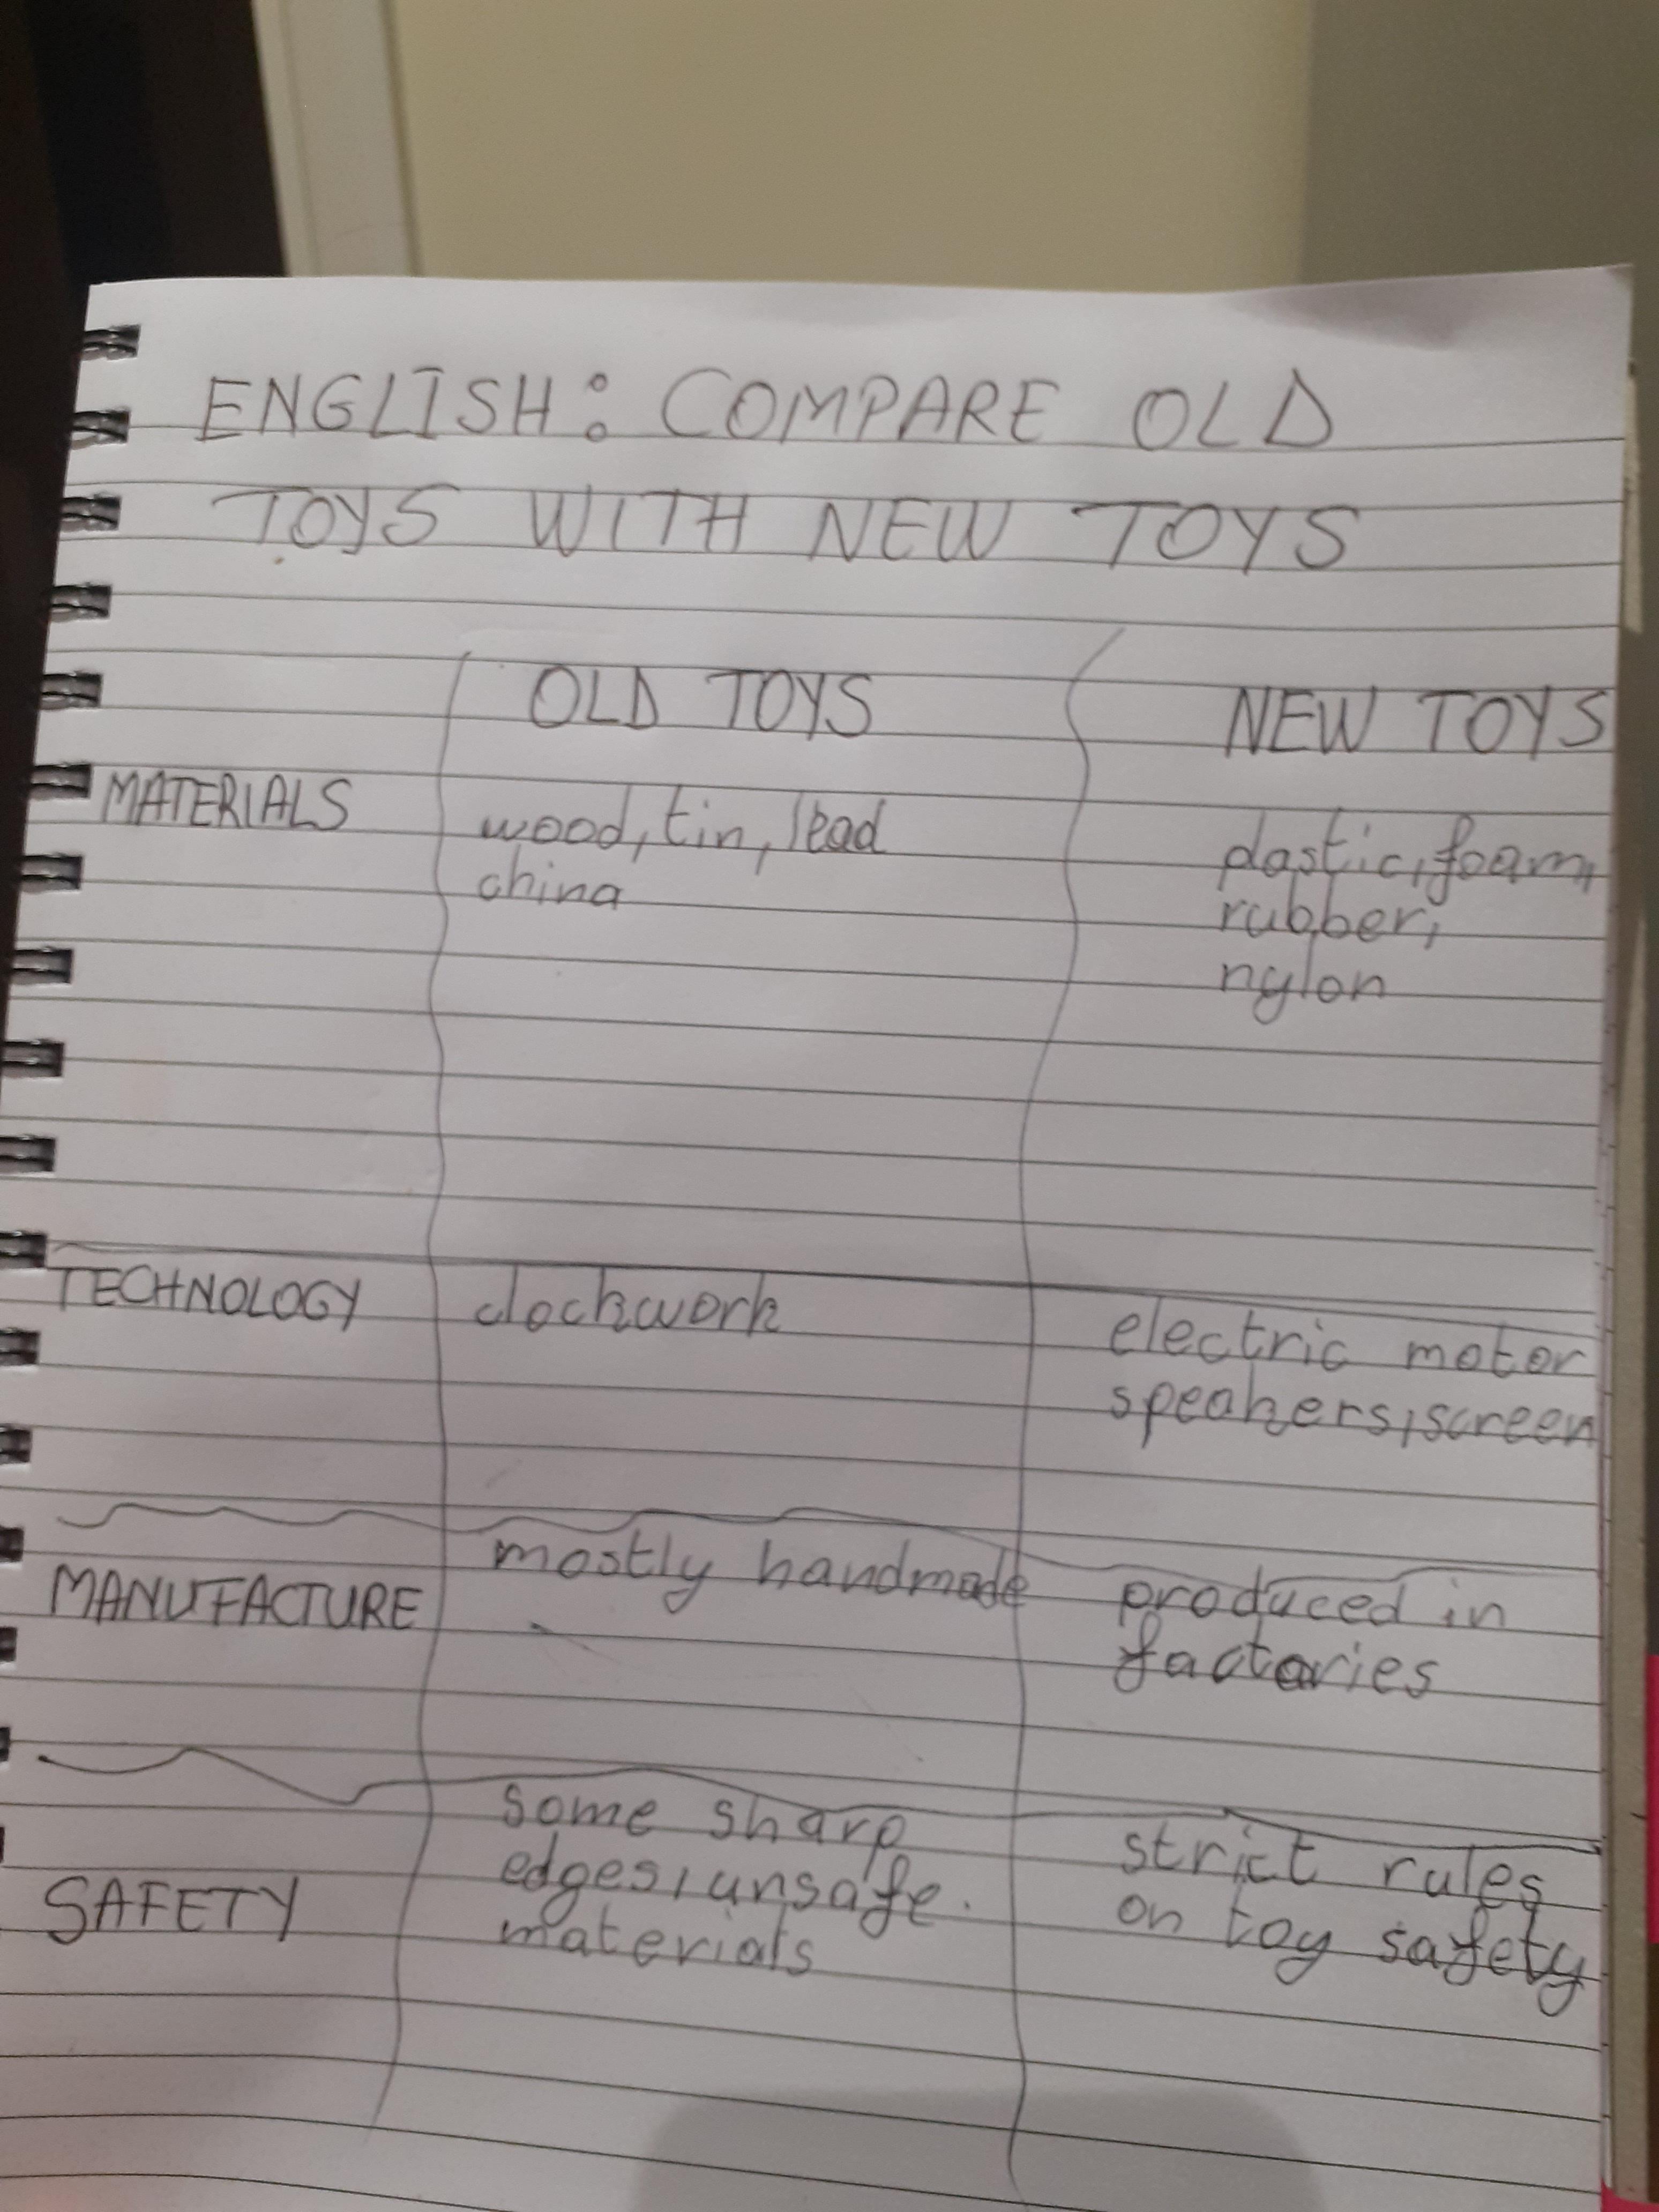 ENGLISH: COMPARE OLD
TOYS WITH NEW TOYS
OLD TOYS NEW TOYS
MATERIALS wood, tin, lead plastic, foam,
china rubber,
nylon
TECHNOLOGY clockwork electric motor
speakers, screen
MANUFACTURE mostly handmade produced in
factories
SAFETY some sharp strict rules
edges, unsafe. on toy safety
materials